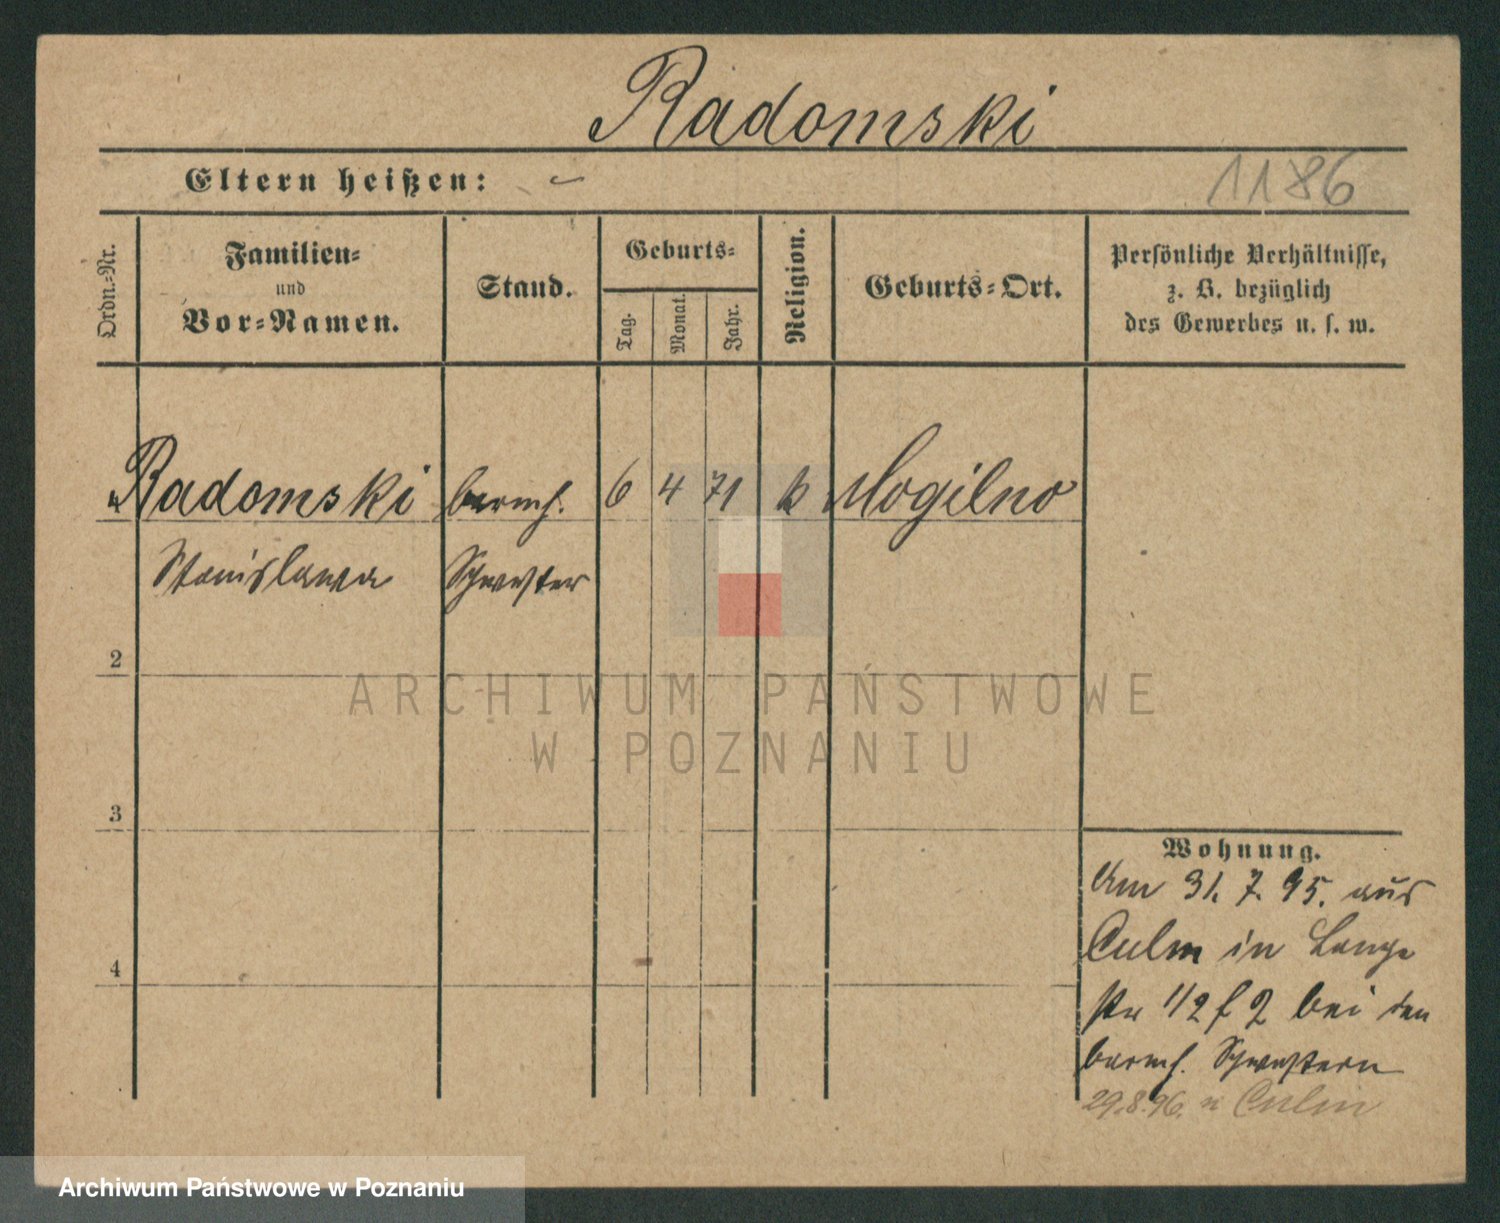 Radomski
Eltern heißen:
1186
Ordn.-Nr.
Familien-
und
Vor-Namen.
Stand.
Geburts-
Tag.
Monat.
Jahr.
Religion.
Geburts-Ort.
Persönliche Verhältnisse,
z. B. bezüglich
des Gewerbes u. s. w.
Radomski barmh. 6 4 71 k Mogilno
Stanislawa Schwester
2
3
4
Wohnung.
Am 31. 7. 95. aus
Culm in Lange
str 1/2 f 2 bei den
barmh. Schwestern
29.8.96. n Culm
ARCHIWUM PAŃSTWOWE
W POZNANIU
Archiwum Państwowe w Poznaniu